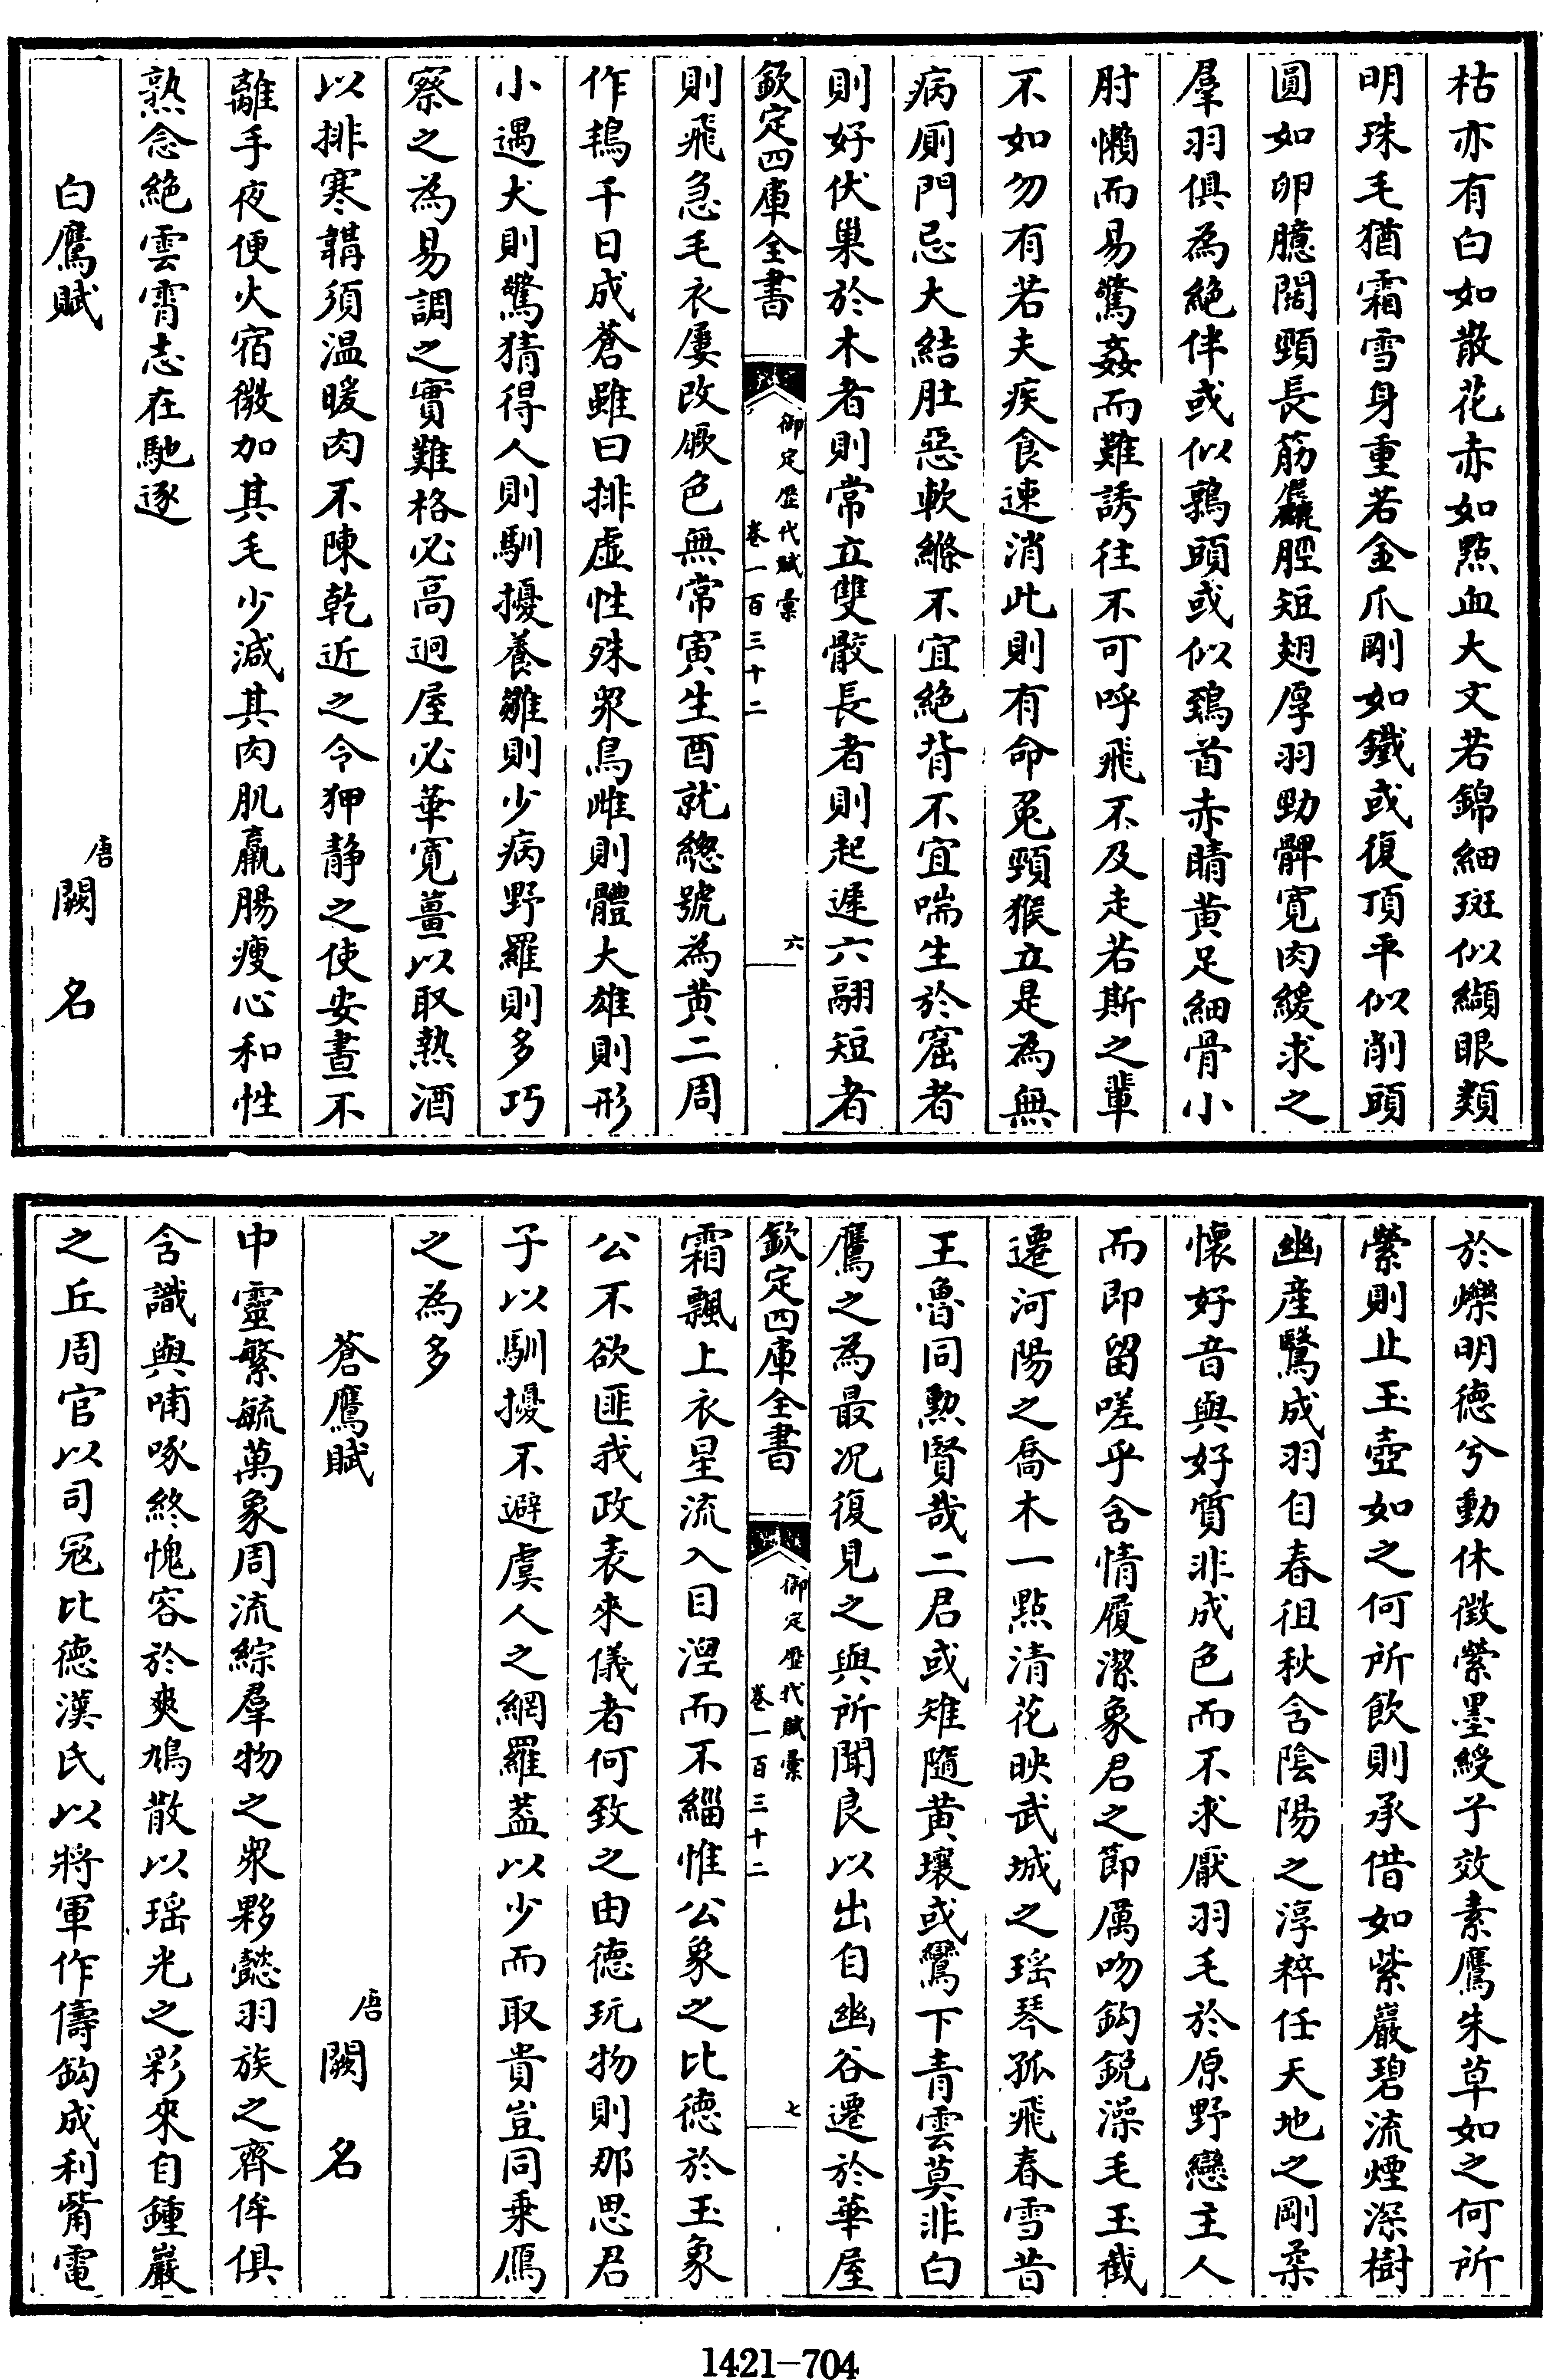 枯亦有白如散花赤如點血大文若錦細斑似纈眼類
明珠毛猶霜雪身重若金爪剛如鐵或復頂平似削頭
圓如卵臆闊頸長筋麤脛短翅厚羽勁髀寛肉緩求之
羣羽俱為絶伴或似鶉頭或似鵄首赤睛黄足細骨小
肘懶而易驚姦而難誘往不可呼飛不及走若斯之輩
不如勿有若夫疾食速消此則有命兎頸猴立是為無
病厠門忌大結肚惡軟縧不宜絶背不宜喘生於窟者
則好伏巢於木者則常立雙骹長者則起遲六翮短者
欽定四庫全書
御定歴代賦彙
卷一百三十二
六
則飛急毛衣屢改厥色無常寅生酉就緫號為黄二周
作鴇千日成蒼雖曰排虚性殊衆鳥雌則體大雄則形
小遇犬則驚猜得人則馴擾養雛則少病野羅則多巧
察之為易調之實難格必高迥屋必華寛薑以取熱酒
以排寒韝須温暖肉不陳乾近之令狎静之使安晝不
離手夜便火宿微加其毛少減其肉肌羸腸瘦心和性
熟念絶雲霄志在馳逐
白鷹賦
唐
闕名
於爍明德兮動休徴縈墨綬予效素鷹朱草如之何所
縈則止玉壺如之何所飲則承借如紫巖碧流煙深樹
幽産鷙成羽自春徂秋含陰陽之淳粹任天地之剛柔
懷好音與好質非成色而不求厭羽毛於原野戀主人
而即留嗟乎含情履潔象君之節厲吻鈎鋭澡毛玉截
遷河陽之喬木一點清花映武城之瑶琴孤飛春雪昔
王魯同勲賢哉二君或雉隨黄壤或鸞下青雲莫非白
鷹之為最况復見之與所聞良以出自幽谷遷於華屋
欽定四庫全書
御定歴代賦彙
卷一百三十二
七
霜飄上衣星流入目涅而不緇惟公象之比德於玉象
公不欲匪我政表來儀者何致之由德玩物則那思君
子以馴擾不避虞人之網羅葢以少而取貴豈同乗鴈
之為多
蒼鷹賦
唐
闕名
中靈繁毓萬象周流綜羣物之衆夥懿羽族之齊侔俱
含識與哺啄終愧容於爽鳩散以瑶光之彩來自鍾巖
之丘周官以司冦比德漢氏以將軍作儔鈎成利觜電
1421-704